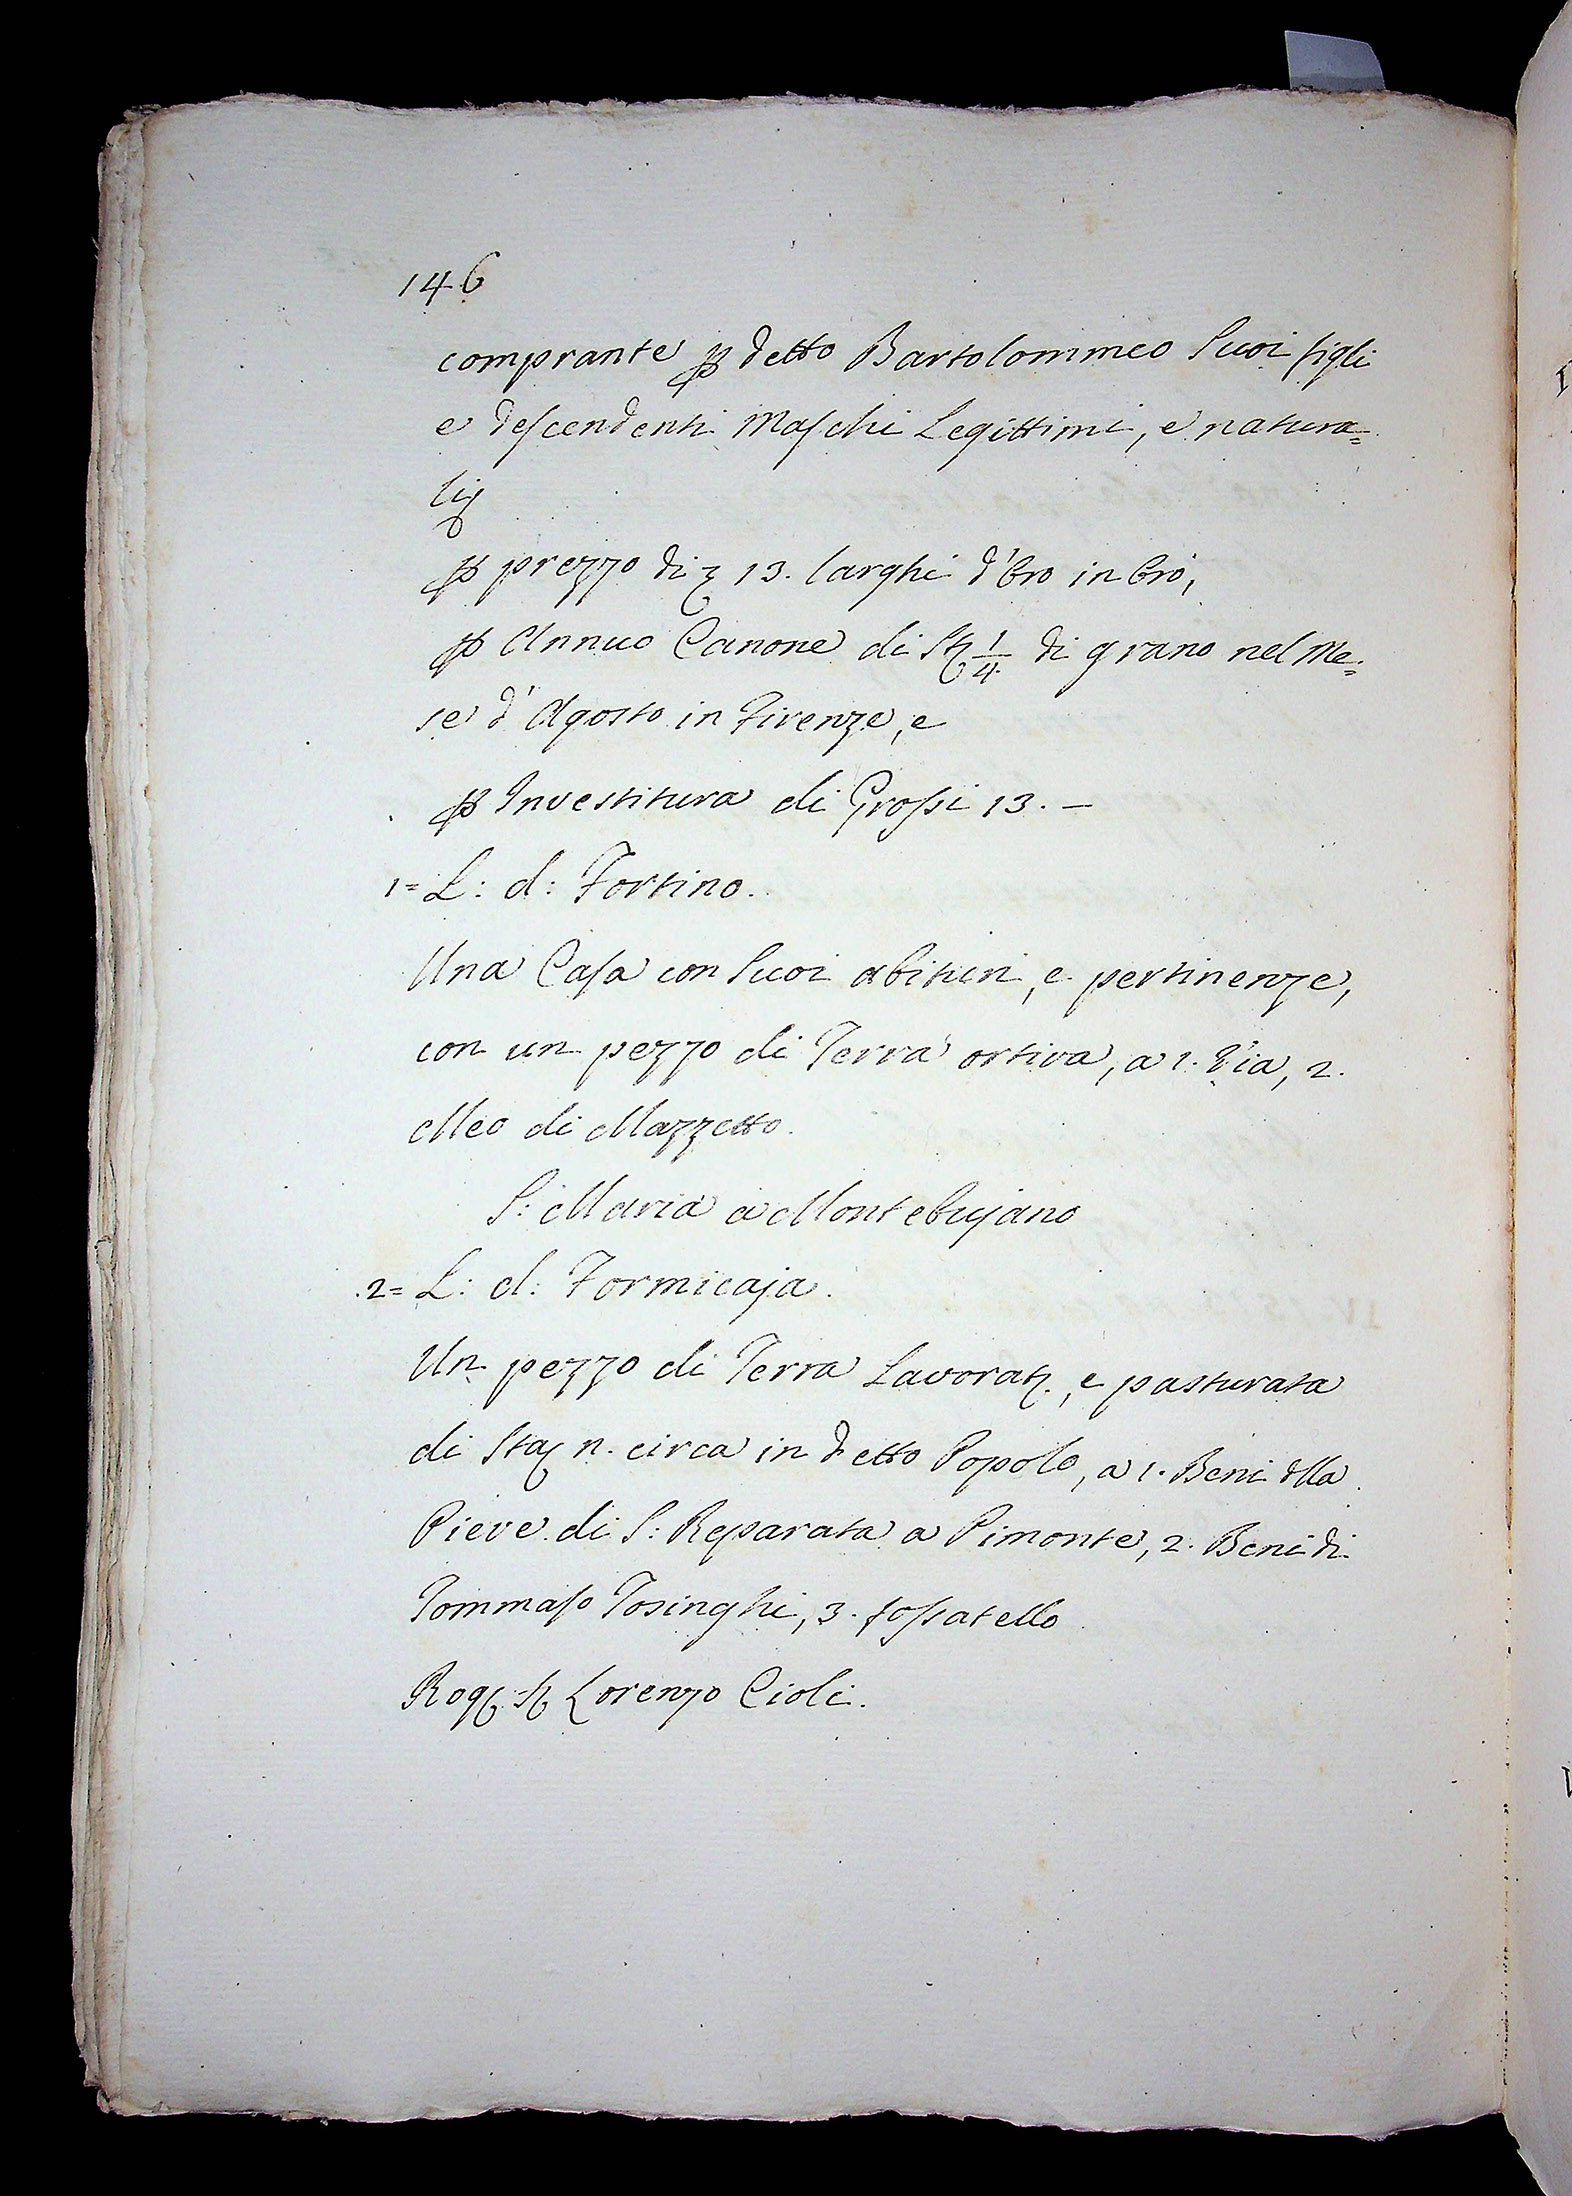 146
comprante ꝑ detto Bartolommeo Suoi figli
e descendenti Maschi Legittimi, e natura=
li
ꝑ prezzo di 13. larghi d'Oro in Oro,
ꝑ Annuo Canone di St. 1/4 di grano nel Me=
se d'Agosto in Firenze, e
ꝑ Investitura di Grossi 13. –
1= L: d: Fortino.
Una Casa con Suoi abituri, e pertinenze,
con un pezzo di Terra ortiva, a 1. Via, 2.
Meo di Mazzetto.
S: Maria a Montebujano
2= L: d: Formicaja.
Un pezzo di Terra Lavorat., e pasturata
di Sta n. circa in detto Popolo, a 1. Beni dlla
Pieve di S: Reparata a Pimonte, 2. Beni di
Tommaso Tosinghi, 3. fossatello
Rog. Lorenzo Cioli.